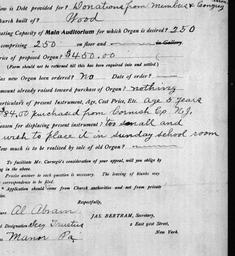 ow is Debt provided for? Donations from Members & Congreg
hurch built of? Wood
ating Capacity of Main Auditorium for which Organ is desired? 250
comprising 250 on floor and in Gallery.
rice of proposed Organ? $400.00
(Form should not be returned till this has been inquired into and settled.)
as new Organ been ordered? No Date of order?
mount already raised toward purchase of Organ? nothing
articulars of present Instrument, Age, Cost Price, Etc. Age 3 years
$84.00 purchased from Cornish Co. N.J.
eason for displacing present instrument? too small and
wish to place it in sunday school room
ow much is to be realized by sale of old Organ?
To facilitate Mr. Carnegie's consideration of your appeal, will you oblige by filling
in the above.
Precise answer to each question is necessary. The leaving of blanks may
correspondence to be filed.
* Application should come from Church authorities and not from private
Respectfully,
Al Abram
JAS. BERTRAM, Secretary,
l Designation Secy Trustees
2 East 91st Street,
New York.
Manor Pa